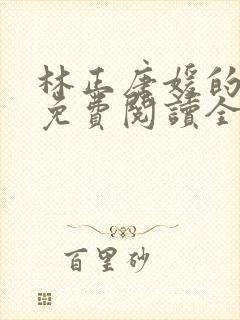 林正唐媛的
免費閱讀全
百里砂